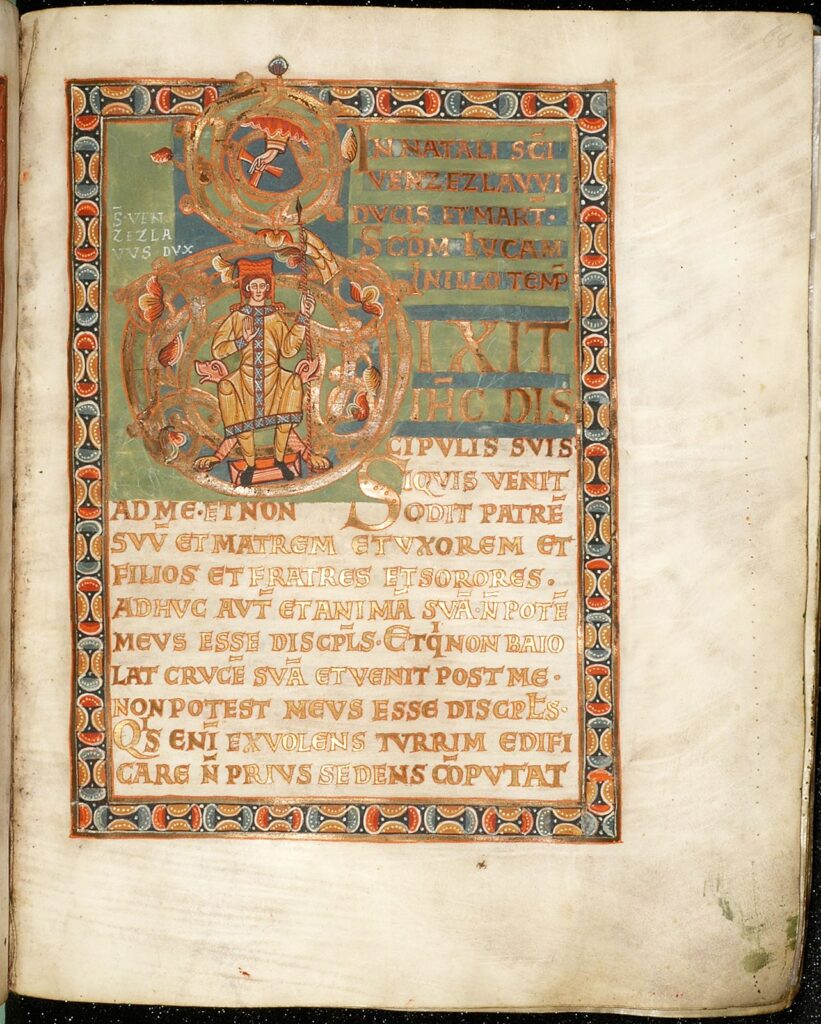 S̄·VEN
ZEZLA
VVS DVX
IN NATALI SC̄I
VENZEZLAVVI
DVCIS ET MART̄·
SCD̄M LVCAM
IN ILLO TEMP̄
DIXIT
IH̄C DIS
CIPVLIS SVIS·
SIQVIS VENIT
AD ME·ET NON ODIT PATRĒ
SVV̄ ET MATREM ET VXOREM ET
FILIOS ET FRATRES ET SORORES·
ADHVC AVT̄ ET ANIMĀ SVĀ·N̄ POTĒ
MEVS ESSE DISCPL̄S·ET qͥ NON BAIO
LAT CRVCĒ SVĀ ET VENIT POST ME·
NON POTEST MEVS ESSE DISCPL̄S·
QͥS ENĪ EX VOLENS TVRRIM EDIFI
CARE N̄ PRIVS SEDENS CŌPVTAT